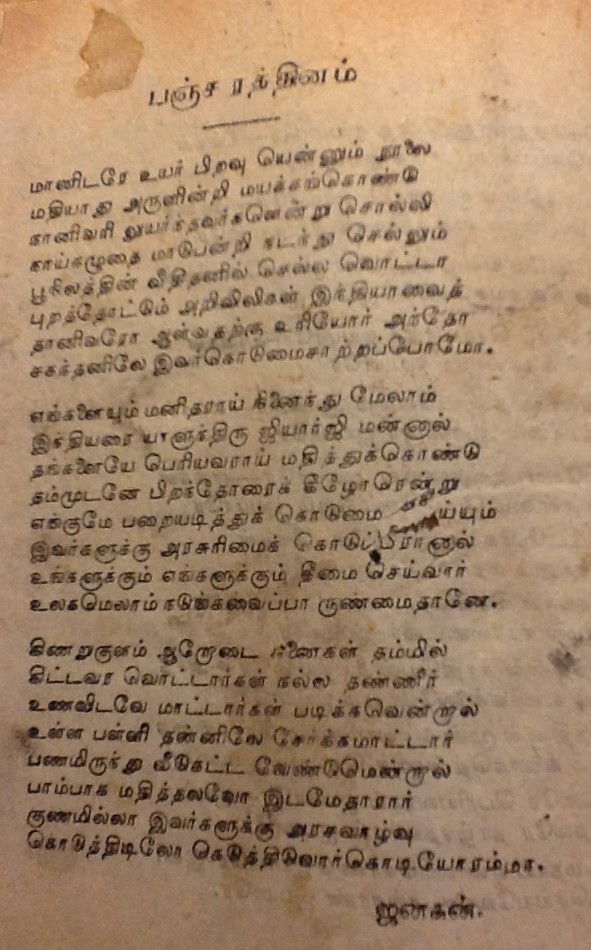 பஞ்ச ரத்தினம்
மானிடரே உயர் பிறவு யென்னும் நூலை
மதியாது அருளின்றி மயக்கங்கொண்டு
நானிவரி லுயர்ந்தவர்களென்று சொல்லி
நாய்கழுதை மாடுபன்றி நடந்து செல்லும்
பூநிலத்தின் வீதிதனில் செல்ல வொட்டா
புறத்தோட்டும் அறிவிலிகள் இந்தியாவைத்
தானிவரோ ஆள்வதற்கு உரியோர் அந்தோ
சகந்தனிலே இவர்கொடுமைசாற்றப்போமோ.
எங்களையும் மனிதராய் நினைந்து மேலாம்
இந்தியரை யாளுந்திரு ஜியார்ஜி மன்னால்
தங்களையே பெரியவராய் மதித்துக்கொண்டு
தம்முடனே பிறந்தோரைக் கீழோரென்று
எங்குமே பறையடித்துக் கொடுமை
இவர்களுக்கு அரசுரிமைக் கொடுப்பீரானால்
உங்களுக்கும் எங்களுக்கும் தீமை செய்வார்
உலகமெலாம் நடுங்கவைப்பா ருண்மைதானே.
கிணறுகுளம் ஆறோடை சுனைகள் தம்மில்
கிட்டவர வொட்டார்கள் நல்ல தண்ணீர்
உணவிடவே மாட்டார்கள் படிக்கவென்றால்
உள்ள பள்ளி தன்னிலே சேர்க்கமாட்டார்
பணமிருந்து வீடுகட்ட வேண்டுமென்றால்
பாம்பாக மதித்தலவோ இடமேதாரார்
குணமில்லா இவர்களுக்கு அரசவாழ்வு
கொடுத்திடிலோ கெடுத்திடுவார்கொடியோரம்மா.
ஜனகன்.